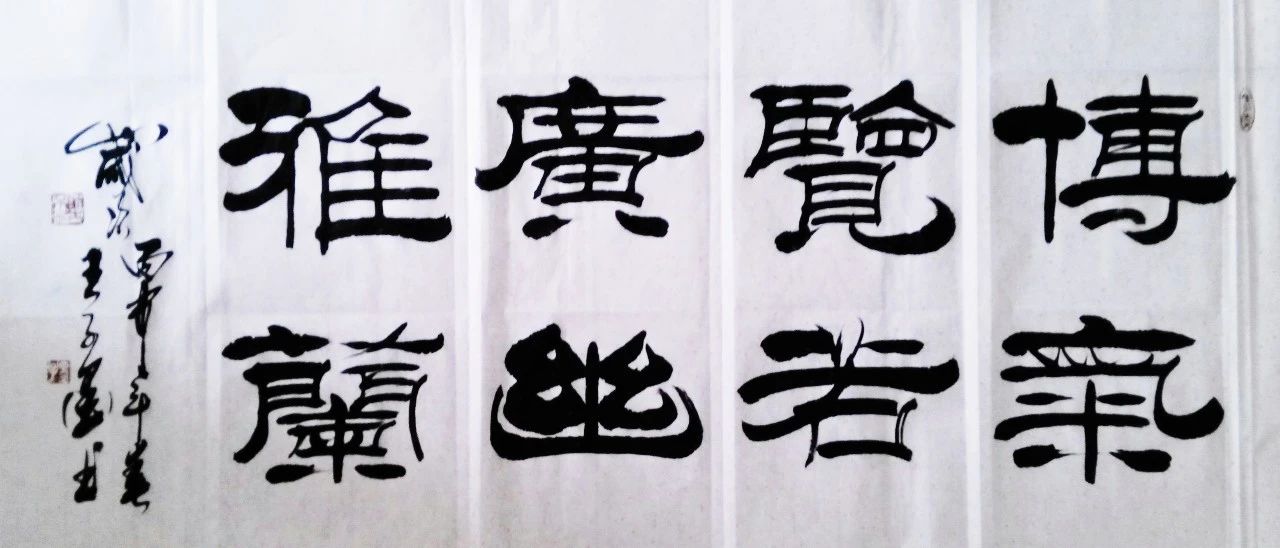 博覽廣雅
氣若幽蘭
歲次丙申年
王子書